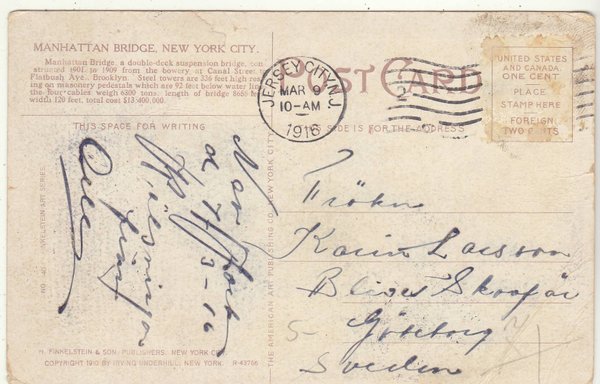 MANHATTAN BRIDGE, NEW YORK CITY.
Manhattan Bridge, a double-deck suspension bridge, con
structed 1901 to 1909 from the bowery at Canal Street
Flatbush Ave., Brooklyn. Steel towers are 336 feet high rest
ing on masonry pedestals which are 92 feet below water line
the four cables weigh 6300 tons, length of bridge 8655 fe
width 120 feet, total cost $13,400,000.
POST CARD
JERSEY CITY, N.J.
MAR 9
10-AM
1916
UNITED STATES
AND CANADA
ONE CENT
PLACE
STAMP HERE
FOREIGN
TWO CENTS
THIS SPACE FOR WRITING
SIDE IS FOR THE ADDRESS
New York
d 7/3-16
Hjelsningar
från
Fröken
Karin Larsson
Göteborg
Sweden
5-
THE AMERICAN ART PUBLISHING CO. NEW YORK CITY
FINKELSTEIN ART SERIES
H. FINKELSTEIN & SON, PUBLISHERS, NEW YORK CITY.
COPYRIGHT 1910 BY IRVING UNDERHILL, NEW YORK. R-43766